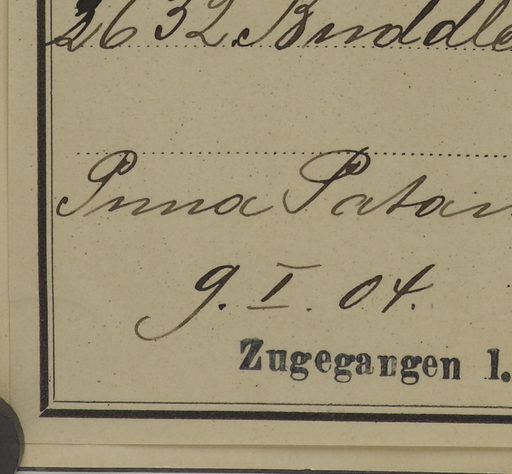 2632 Buddle
Pnna Patan
9. I. 04.
Zugegangen 1.